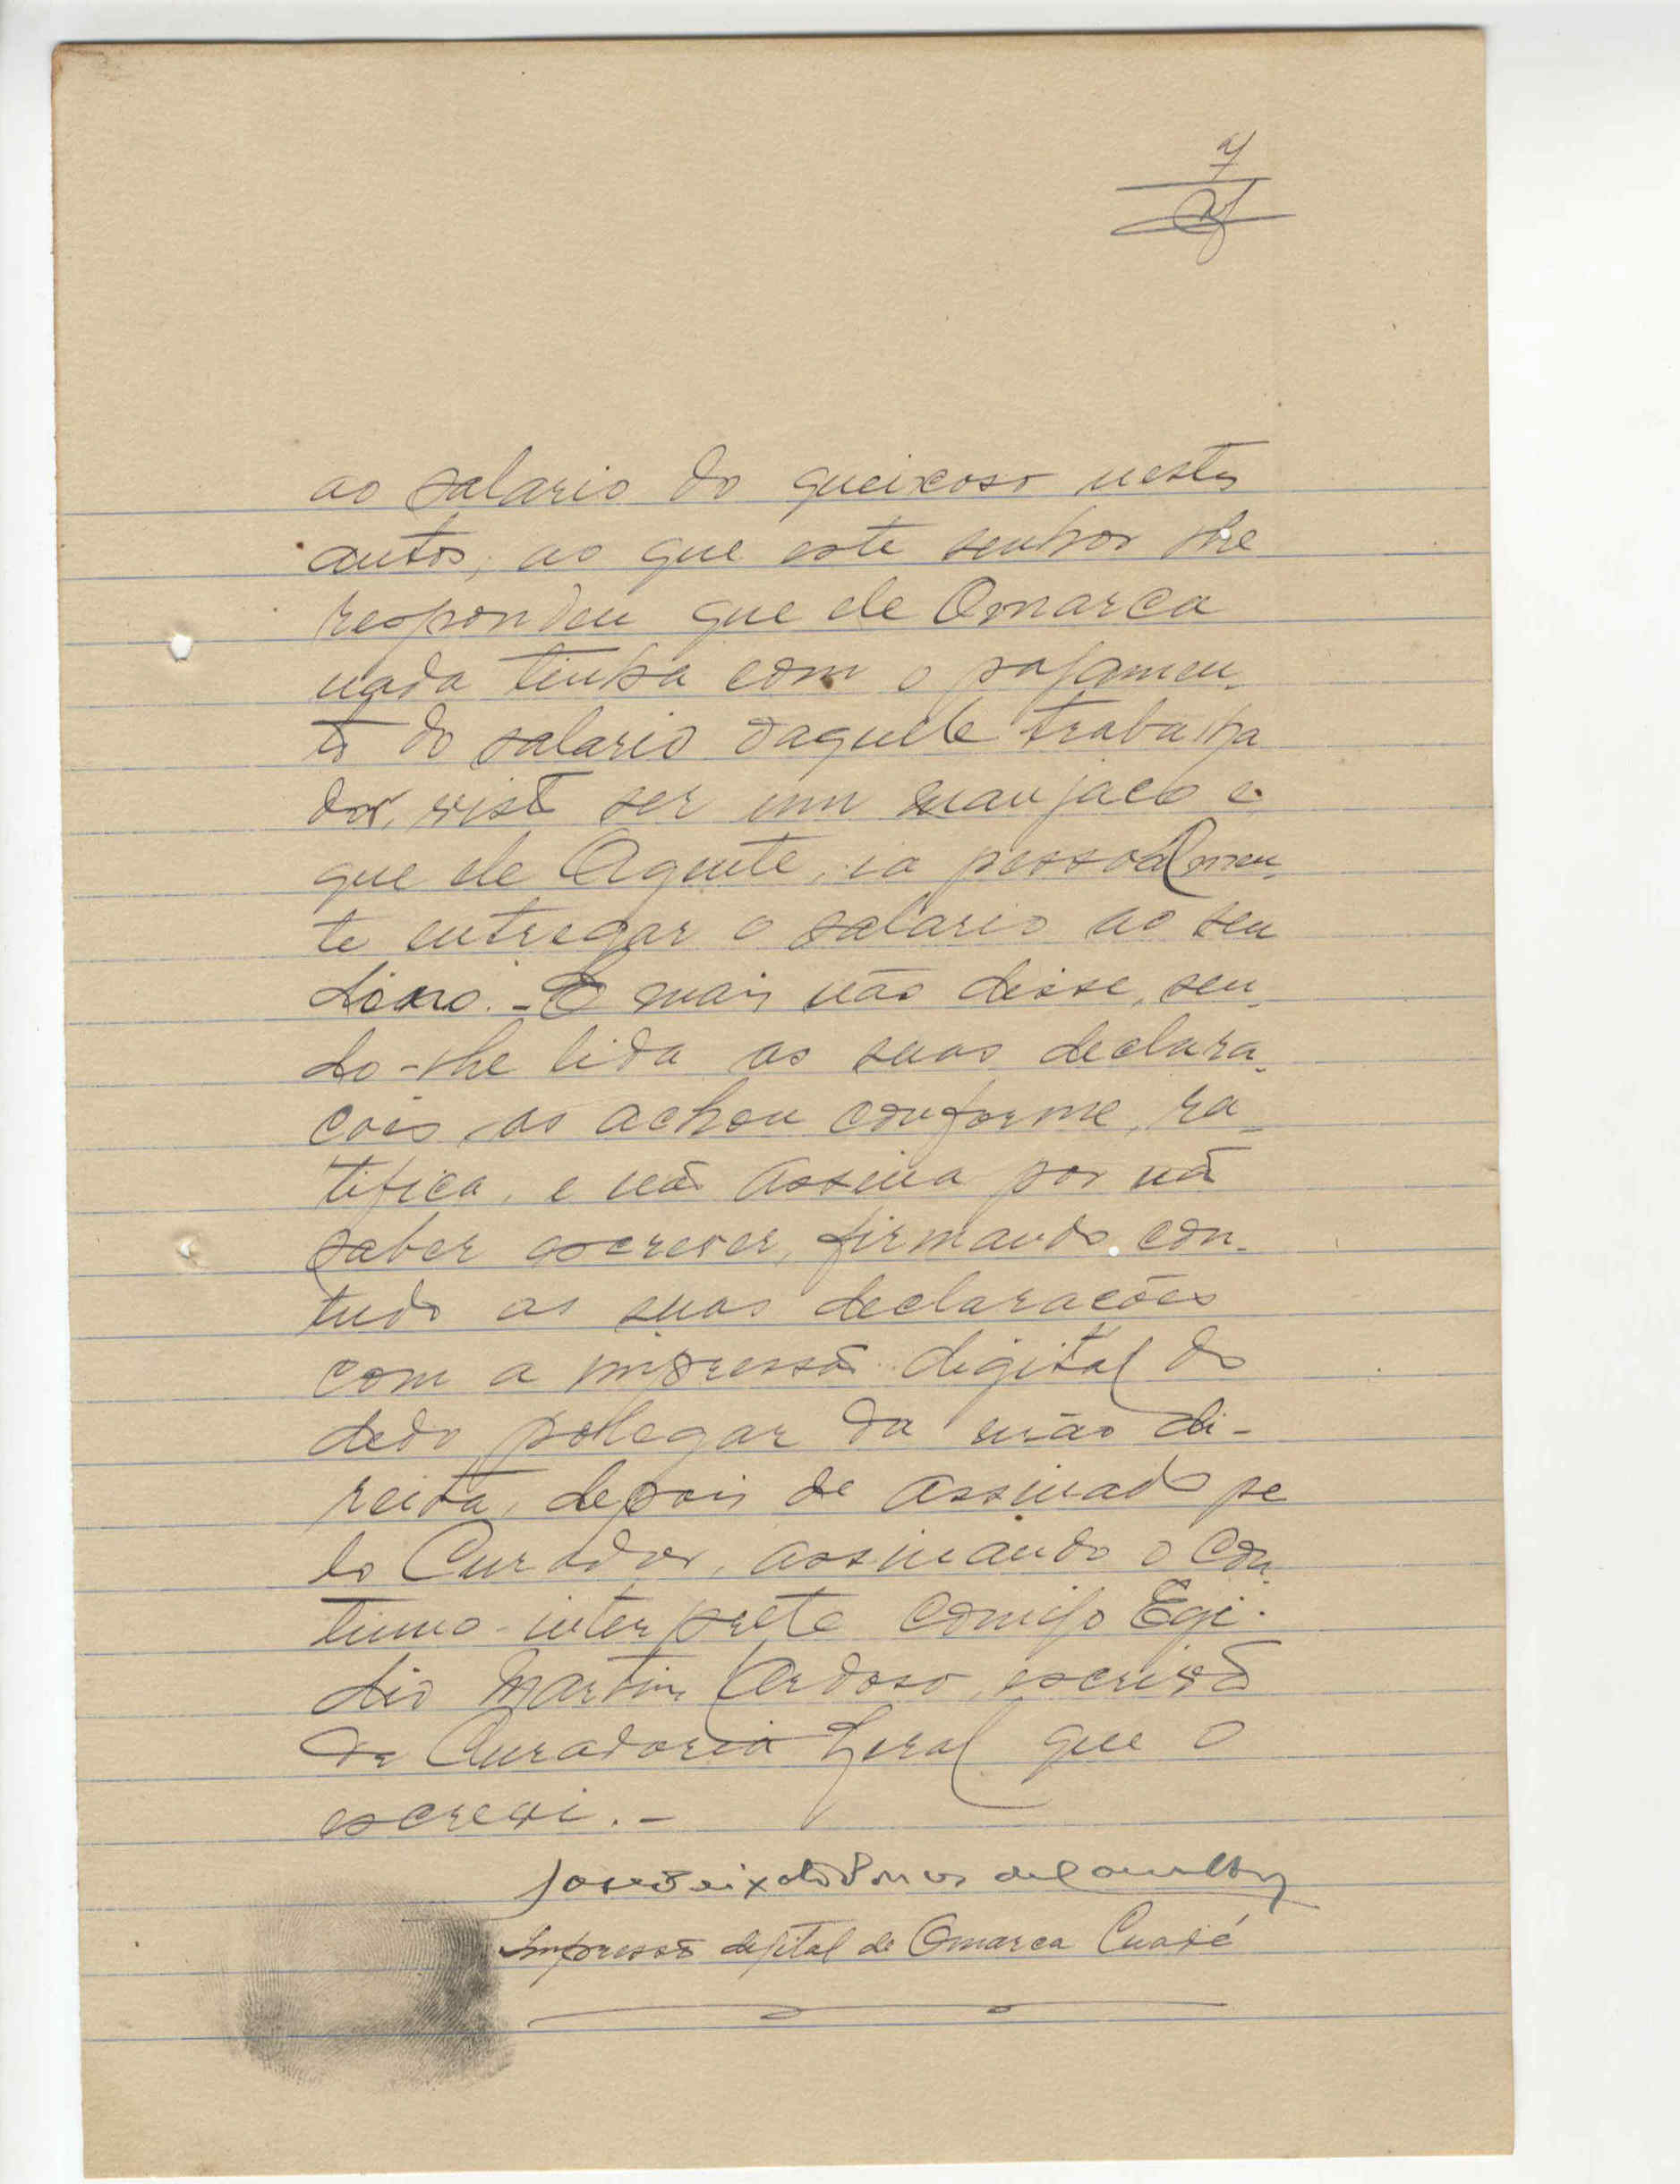 7
ao salario do queixoso nestes
autos, ao que este senhor lhe
respondeu que ele Omarca
nada tinha com o pagamen-
to do salario daquele trabalha
dor, visto ser um manjaco e
que ele Agente, ia pessoalmen-
te entregar o salario ao seu
dono. - E mais não disse, sen-
do-lhe lida as suas declara-
cois as achou conforme, ra-
tifica, e não assina por não
saber escrever, firmando con-
tudo as suas declaracões
com a impressão digital do
dedo polegar da mão di-
reita, depois de assinado pe
lo Curador, assinando o Con-
tinuo-interprete comigo Egi-
dio Martins Cardoso, escrivão
da Curadoria Geral que o
escrevi. -
José Peixoto Ponces de Carvalho
Impressão digital de Omarca Cuaté